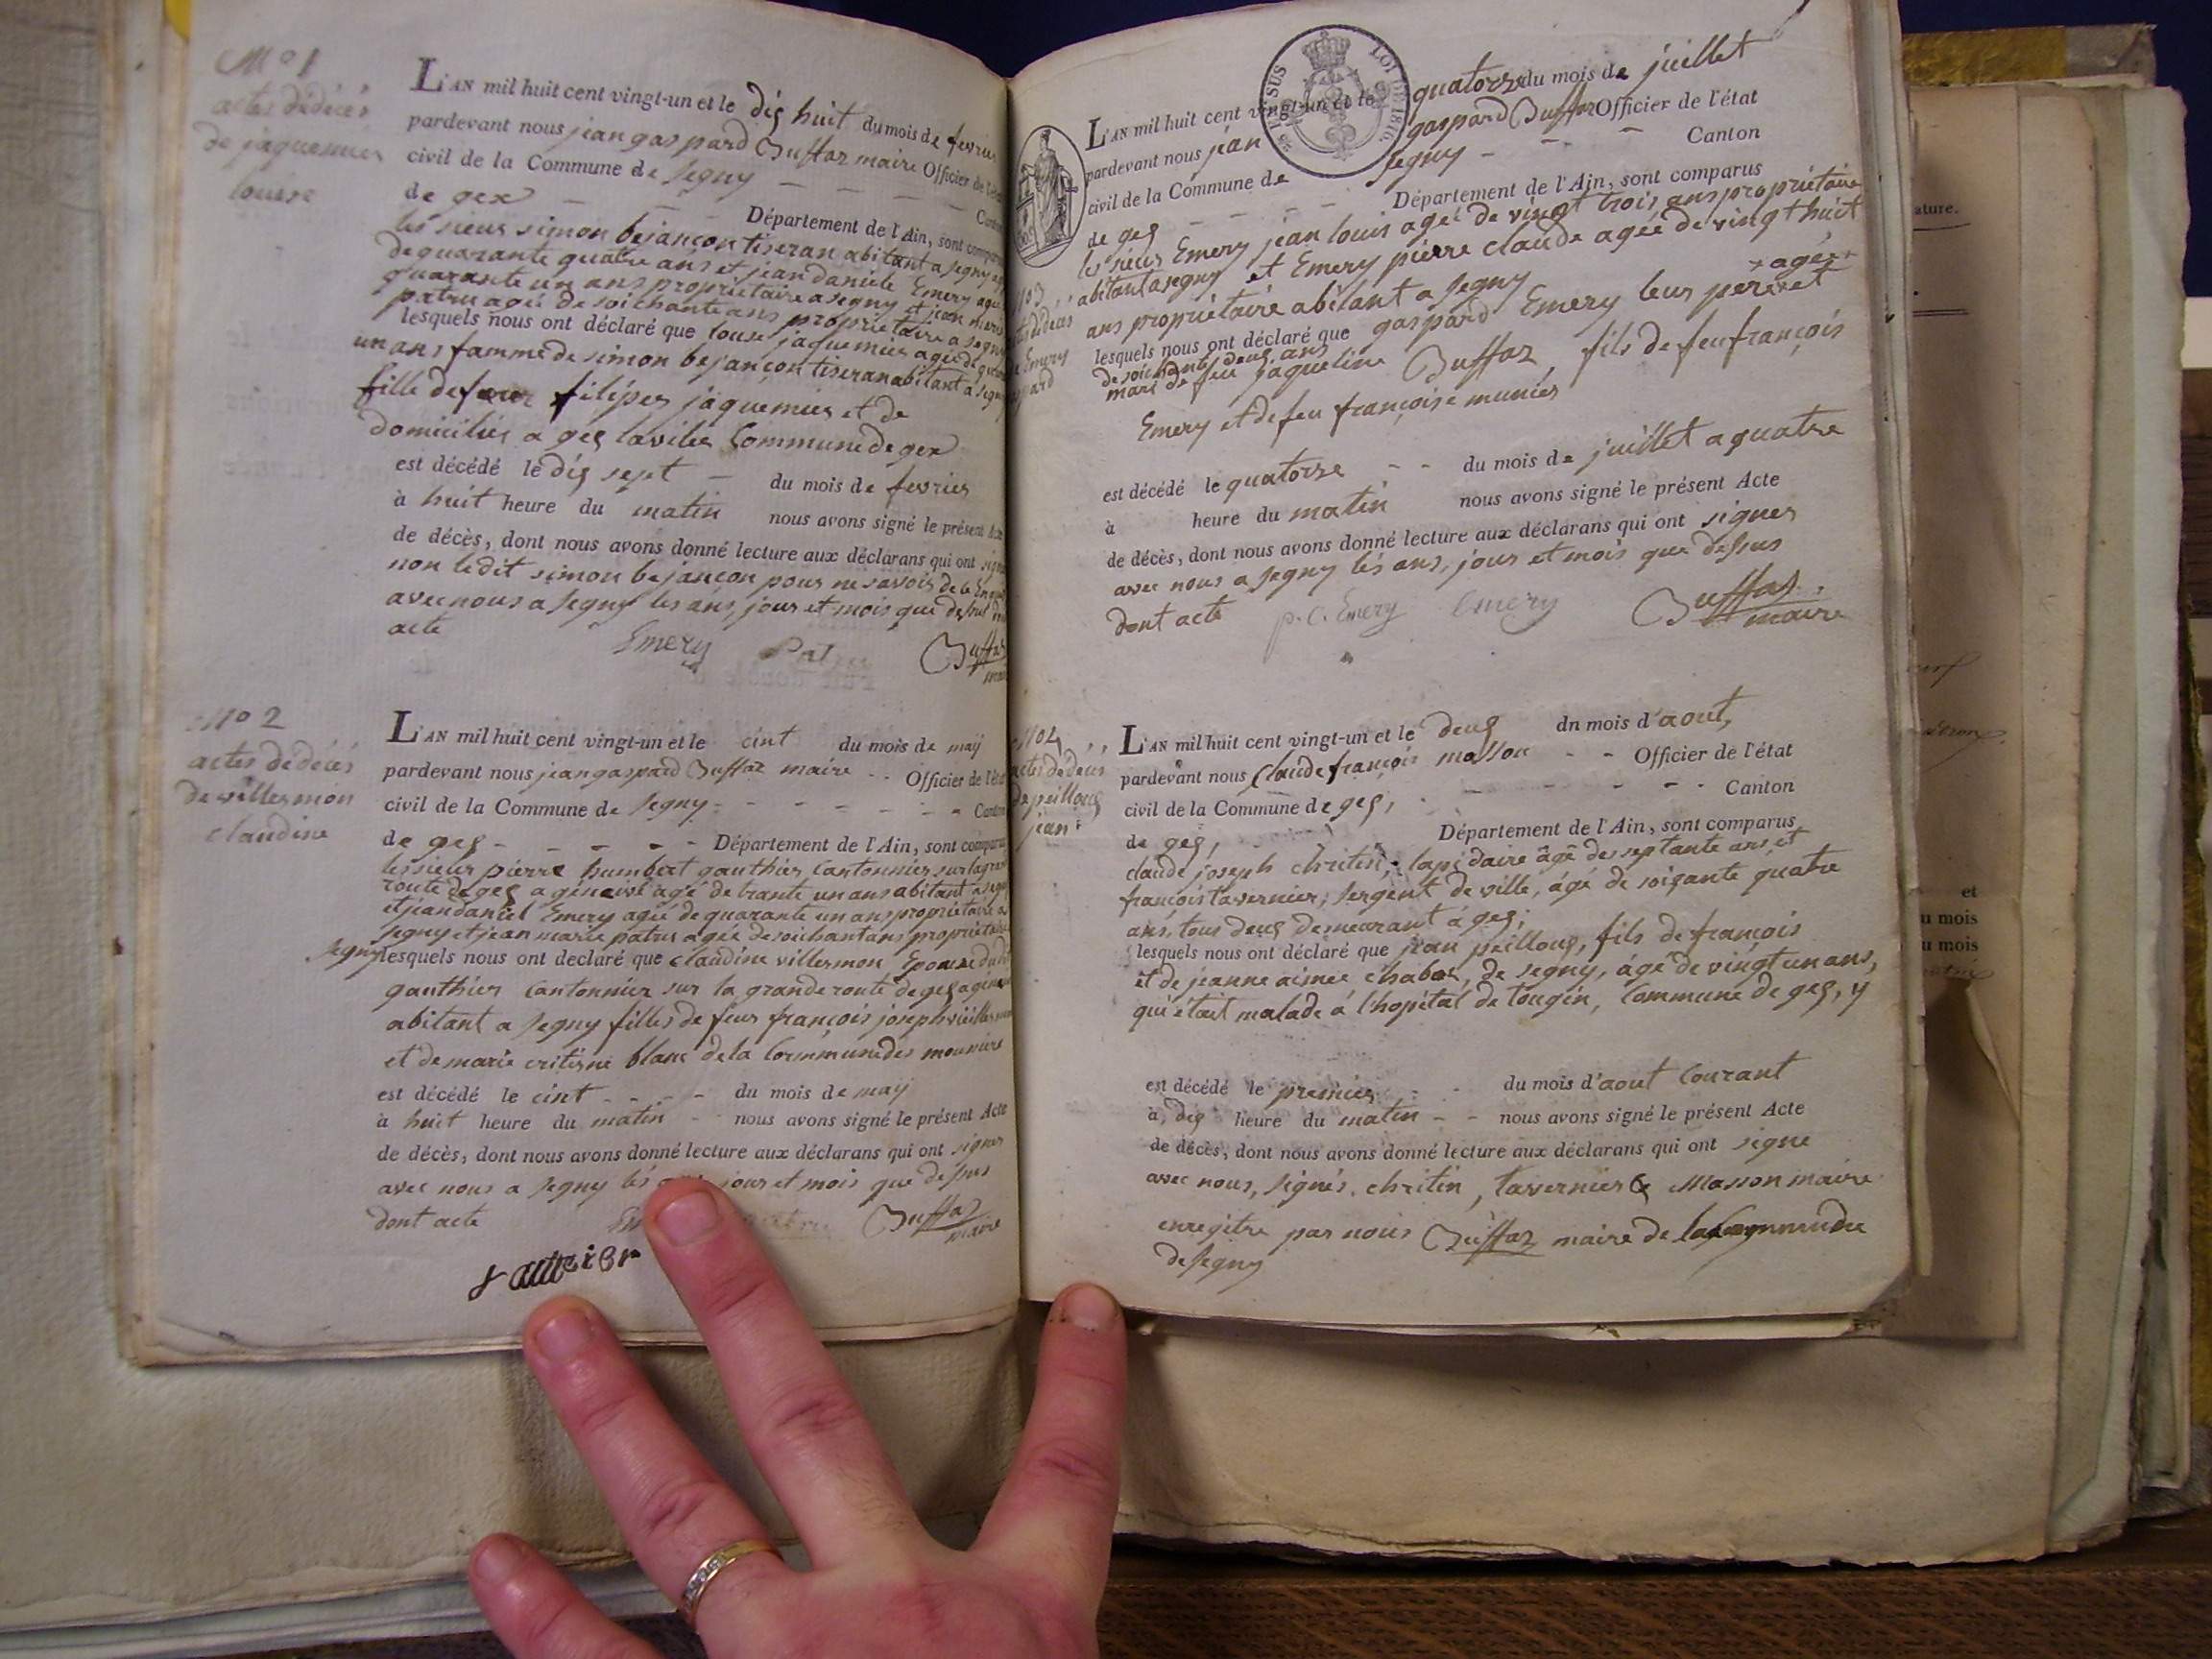 No 1
actes dédécés
de jaquemier
louise
L'AN mil huit cent vingt-un et le dix huit du mois de fevrier
pardevant nous jean gaspard Buffaz maire Officier de l'état
civil de la Commune de Segny
de gex Département de l'Ain, sont comparus
les sieurs simon bejançon tiseran abitant a segny
de quarante quatre ans et jean daniele Emery agé
quarante un ans propriétaire a segny et jean marie
patru agé de soichante ans propriétaire a segny
lesquels nous ont déclaré que louise jaquemier agée de
un ans famme de simon bejançon tiseran abitant a segny
fille de feu filipes jaquemier et de
domiciliés a gex la ville Commune de gex
est décédé le dix sept du mois de fevrier
à huit heure du matin nous avons signé le présent
de décès, dont nous avons donné lecture aux déclarans qui ont signé
non ledit simon bejançon pour ne savoir de le
avec nous a Segny les ans, jour et mois que dessus
acte
Emery Buffaz
No 2
actes dédécés
de villermon
claudine
L'AN mil huit cent vingt-un et le cint du mois de maij
pardevant nous jean gaspard Buffaz maire Officier de l'état
civil de la Commune de Segny Canton
de gex Département de l'Ain, sont comparus
les sieur pierre humbert gauthier, Cantonnier sur la grande
route de gex a geneve agé de trante un ans abitant a segny
et jean daniel Emery agé de quarante un ans propriétaire a
segny et jean marie patru agée de soichant ans propriétaire
Segny lesquels nous ont declaré que claudine villermon Epouse dudit
gauthier Cantonnier sur la grande route de gex a geneve
abitant a Segny filles de feux françois joseph
et de marie critisne blanc de la Commune des
est décédé le cint du mois de maij
à huit heure du matin nous avons signé le présent Acte
de décès, dont nous avons donné lecture aux déclarans qui ont signer
avec nous a Segny lés jour et mois que dessus
dont acte Buffaz
maire
L'AN mil huit cent vingt-un et le quatorze du mois de juillet
pardevant nous jean gaspard Buffaz Officier de l'état
civil de la Commune de Segny Canton
de gex Département de l'Ain, sont comparus
les sieurs Emery jean louis agé de vingt trois ans propriétaire
abitant a segny et Emery pierre claude agée de vingt huit
ans propriétaire abitant a Segny
lesquels nous ont déclaré que gaspard Emery leur pere et
+ agée
de soichante deux ans
mari de feu jaqueline Buffaz fils de feu françois
Emery et de feu françoise munier
est décédé le quatorze du mois de juillet a quatre
à heure du matin nous avons signé le présent Acte
de décès, dont nous avons donné lecture aux déclarans qui ont signer
avec nous a segny lés ans, jour et mois que dessus
dont acte p. C. Emery Emery Buffaz
maire
actes dédécés
de peilloux
jean
L'AN mil huit cent vingt-un et le deux dn mois d'aout,
pardevant nous Claude françois masson Officier de l'état
civil de la Commune de gex, Canton
de gex, Département de l'Ain, sont comparus
claude joseph chritin, lapidaire âgé de septante ans, et
françois tavernier, sergent de ville, âgé de soixante quatre
ans, tous deux demeurant à gex;
lesquels nous ont déclaré que jean peilloux, fils de françois
et de jeanne aimée chabot, de segny, âgé de vingt un ans,
qui était malade à l'hopital de tougin, Commune de gex, y
est décédé le premier du mois d'aout Courant
à dix heure du matin nous avons signé le présent Acte
de décès, dont nous avons donné lecture aux déclarans qui ont signé
avec nous, signés. chritin, tavernier & Masson maire
enregitre par nous Buffaz maire de la Commune
de Segny
ature.
et
u mois
u mois